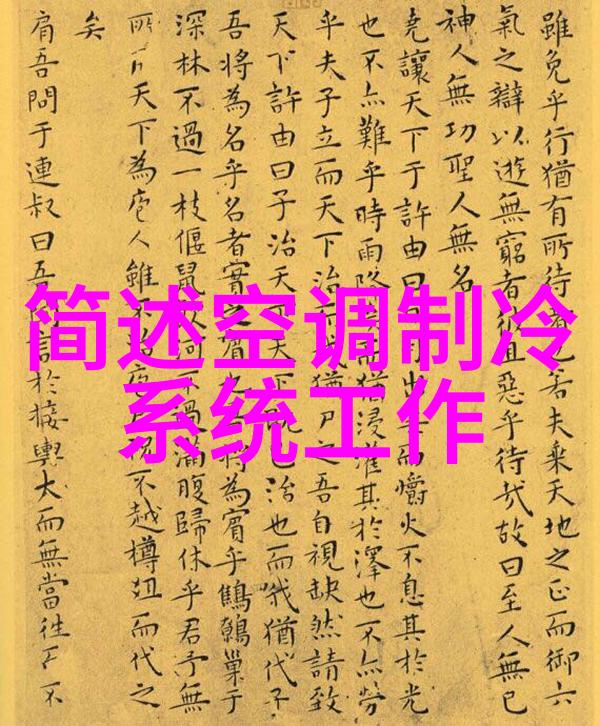 简述空调制冷
系统工作
雖免乎行猶有所待者也若夫乘天地之正而御六
氣之辯以遊無窮者彼且惡乎待哉故曰至人無己
神人無功聖人無名
堯讓天下于許由曰月出而爝火不息其於光
也不亦難乎時雨降而猶浸灌其於澤也不亦勞
乎夫子立而天下治我猶尸之吾自視缺然請致
天下許由曰子治天下天下既已治也而我猶代子
吾將為名乎名者實之賓也將為賓乎鷦鷯巢于
深林不過一枝偃鼠飲河不過滿腹歸休乎君予無
所天下為庖人雖不治庖不越樽俎而代之
矣
肩吾問于連叔曰吾言於接輿大而無當往而不